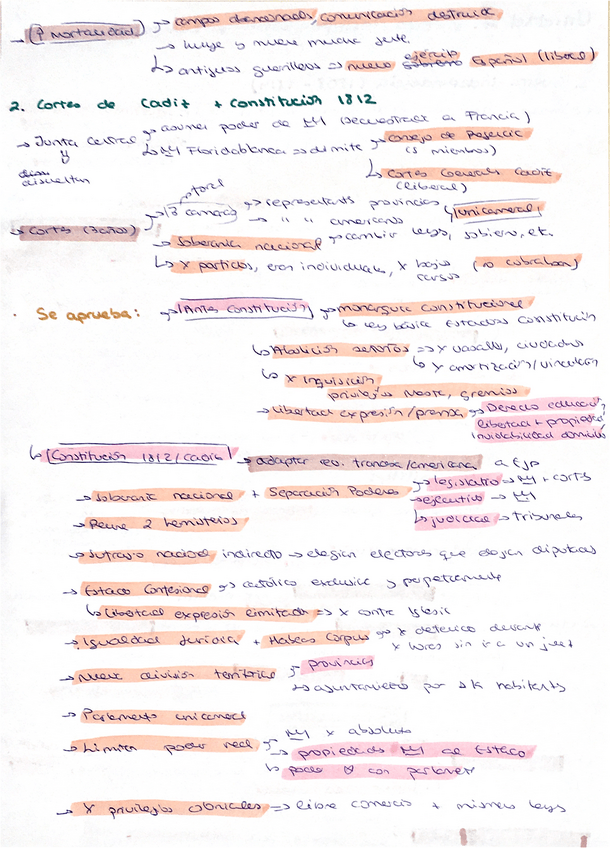 → (↑ Mortalidad) → campos abandonados, comunicación destruida
→ huye y muere mucha gente
↳ antiguos guerrilleros ⇒ nuevo ejército Español (liberal)
2. Cortes de Cadiz + Constitución 1812
→ Junta Central → asume poder de M (secuestrado a Francia)
↳ M Floridablanca ⇒ dimite → Consejo de Regencia
(5 miembros)
disuelta
↳ Cortes Generales Cadiz
(liberal)
total
→ Cortes (3 años) → 3 camaras → representants provincias
→ " " americanos
unicameral
→ Soberania nacional → cambiar leyes, gobierno, etc.
→ X partidos, eran individuales, X bajos (no cobraban)
· Se aprueba: → Antes Constitución → monarquia constitucional
↳ ley básica Estados Constitución
↳ Abolición señorios ⇒ X vasallos, ciudadanos
↳ X amortización/vinculación
↳ X Inquisición
privilegios Mesta, gremios
→ libertad expresión/prensa → Derecho educación,
libertad + propiedad
inviolabilidad domicilio
↳ Constitución 1812/Cadiz → adaptar rev. francesa/americana a Esp
→ Soberania nacional + Separación Poderes → legislativo → M + cortes
→ ejecutivo → M
↳ judicial → tribunales
→ Reune 2 hemisferios
→ Sufragio nacional indirecto → elegian electores que elegian diputados
→ Estado Confesional → católico exclusive y perpetuamente
↳ libertad expresión limitada ⇒ X contra Iglesia
→ Igualdad Juridica + Habeas Corpus → X detenido durante
X horas sin ir a un juez
→ nueva división territorial → provincias
→ ayuntamientos por 1k habitants
→ Parlamento unicameral
→ Limitar poder real → M X absoluto
→ propiedades M al Estado
↳ poder M con parlamento
→ X privilegios ⇒ libre comercio + mismas leyes